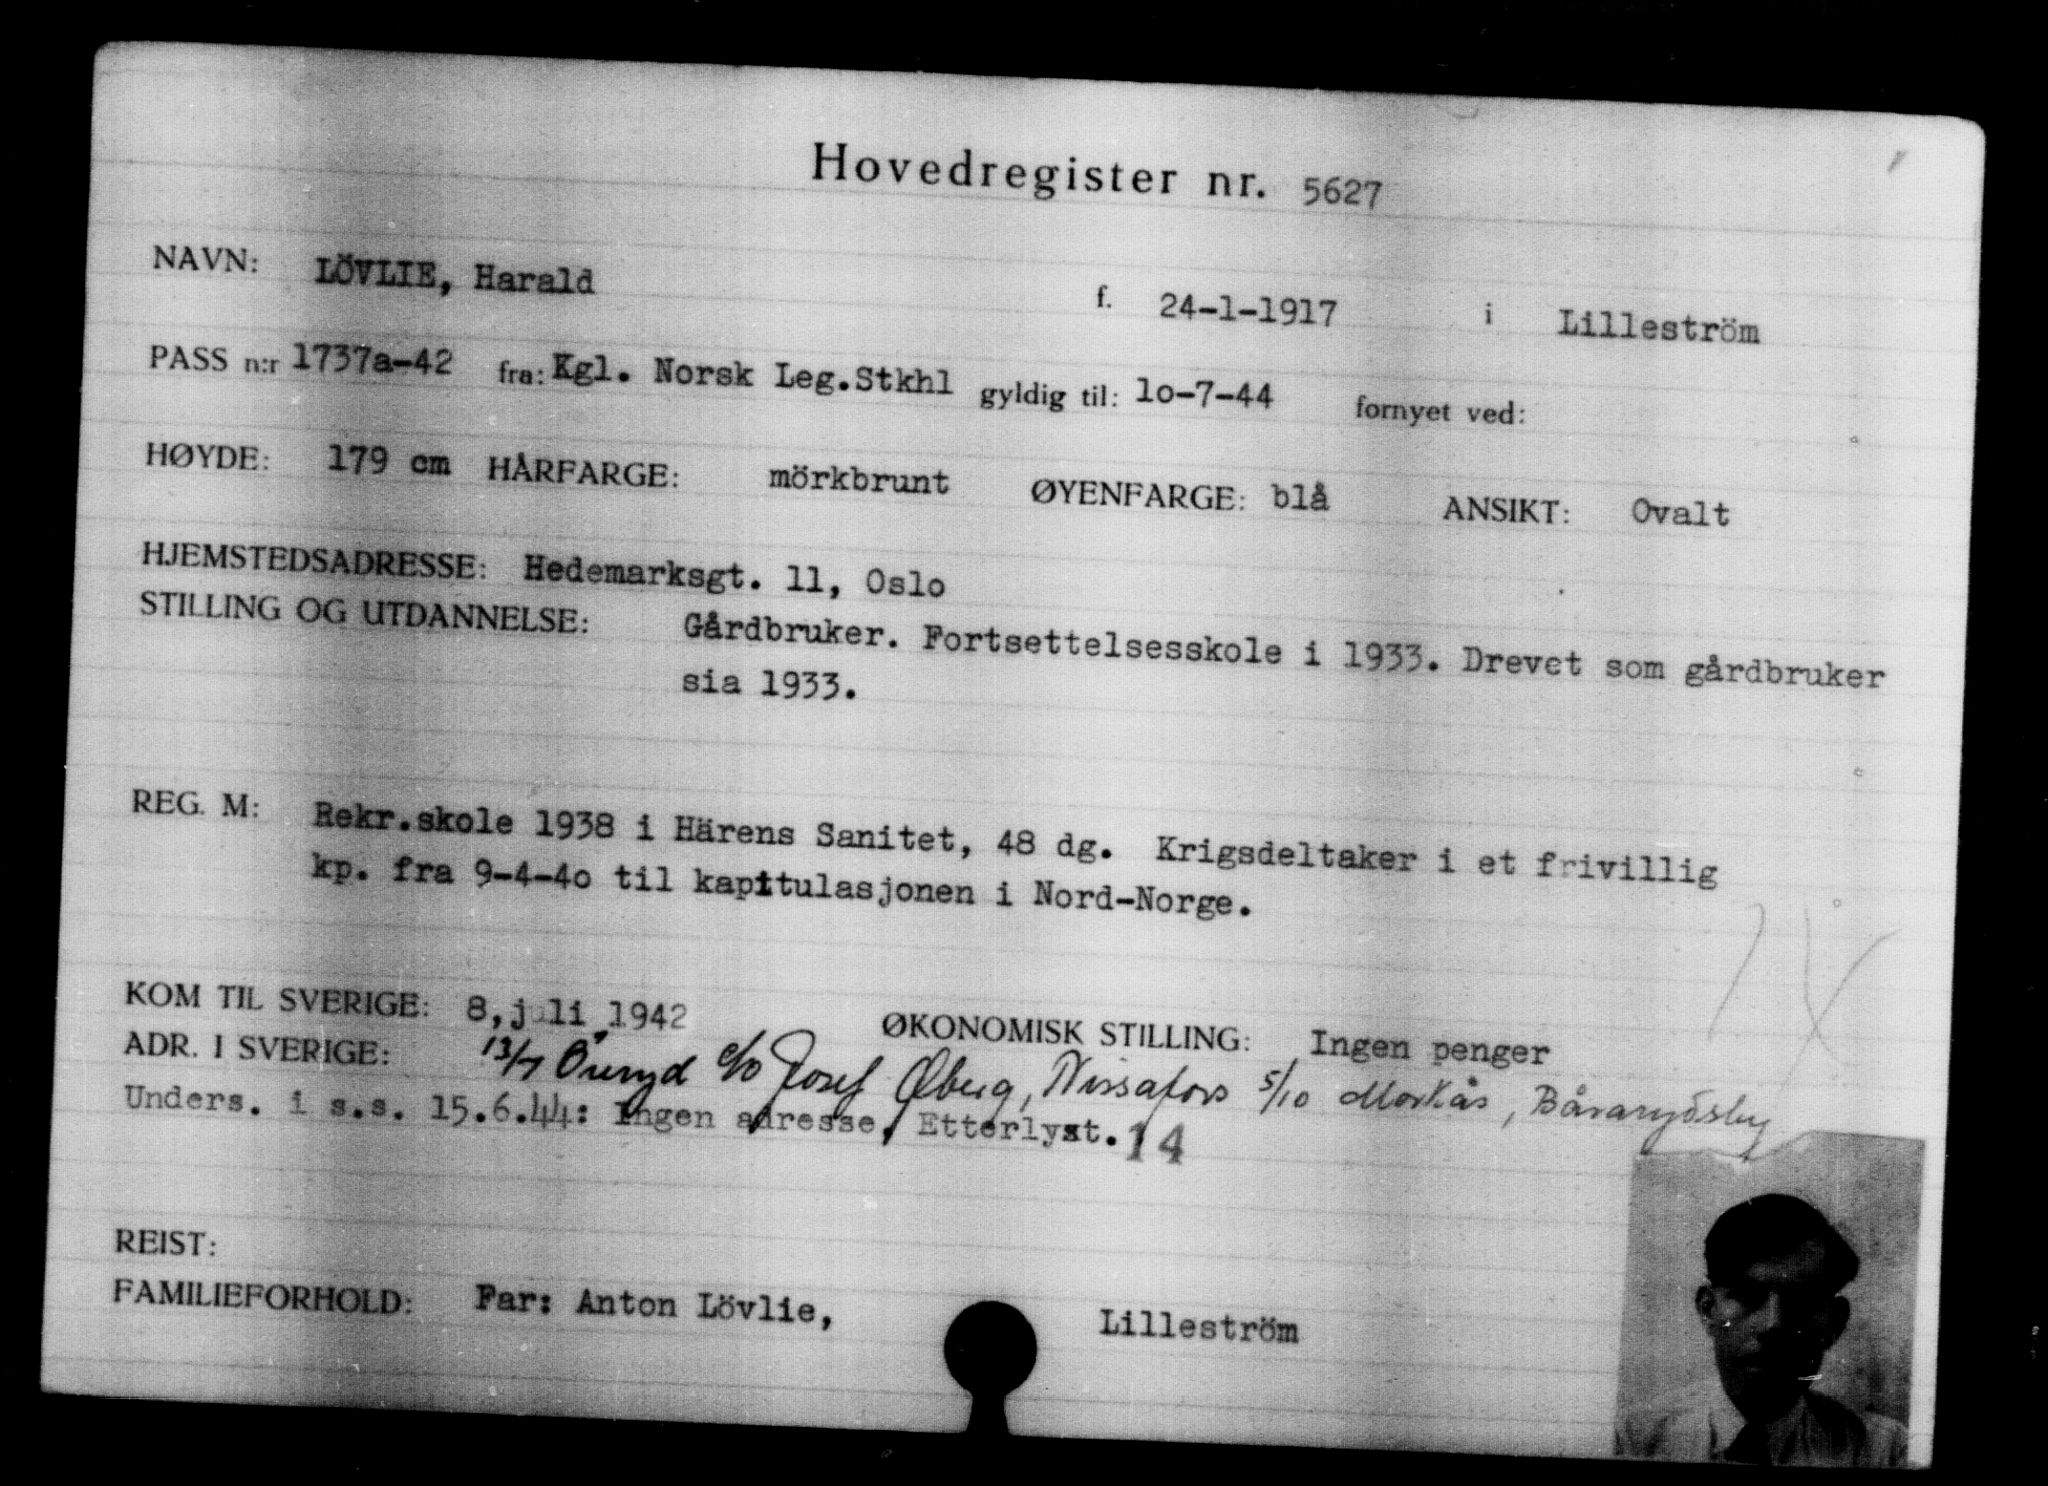 Hovedregister nr. 5627
NAVN: LÖVLIE, Harald f. 24-1-1917 i Lilleström
PASS n:r 1737a-42 fra: Kgl. Norsk Leg.Stkhl gyldig til: 1o-7-44 fornyet ved:
HØYDE: 179 cm HÅRFARGE: mörkbrunt ØYENFARGE: blå ANSIKT: Ovalt
HJEMSTEDSADRESSE: Hedemarksgt. 11, Oslo
STILLING OG UTDANNELSE: Gårdbruker. Fortsettelsesskole i 1933. Drevet som gårdbruker
sia 1933.
REG. M: Rekr.skole 1938 i Härens Sanitet, 48 dg. Krigsdeltaker i et frivillig
kp. fra 9-4-4o til kapitulasjonen i Nord-Norge.
KOM TIL SVERIGE: 8, juli 1942 ØKONOMISK STILLING: Ingen penger
ADR. I SVERIGE: 13/7 Öreryd c/o Josef Øberg, Nissafors 5/10 Morkås,
Unders. i s.s. 15.6.44: Ingen adresse, Etterlyst. 14
REIST:
FAMILIEFORHOLD: Far: Anton Lövlie, Lilleström